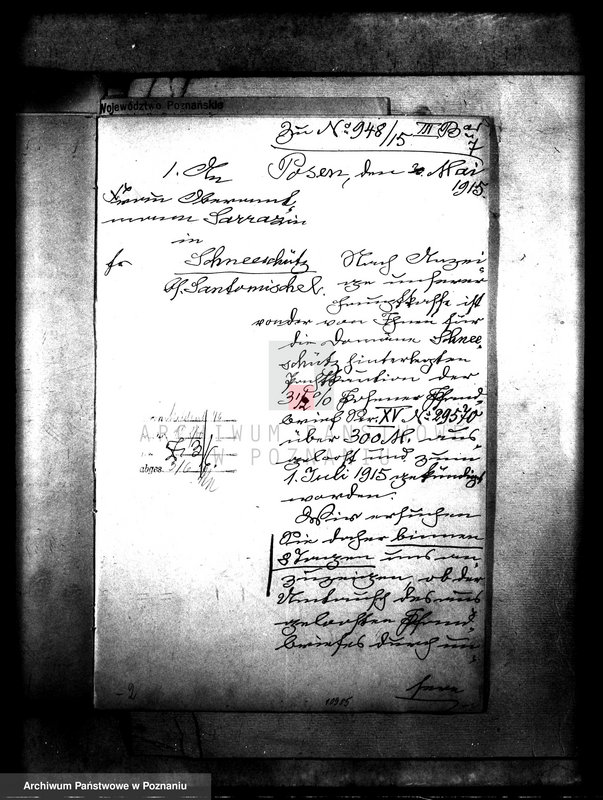 Województwo Poznańskie
Zu No 948/15 III B
Posen, den 20. Mai
1915.
1. An
Herrn Oberamt-
mann Sarrazin
in
fr Schneeschütz
bei Santomischel.
Nach Anzei-
ge unserer
Hauptkasse ist
von der von Ihnen für
die Domäne Schnee-
schütz hinterlegten
Pachtkaution der
3½ % Posener Pfand-
brief Ser. XV No 29570
über 300 M. aus-
gelost und zum
1. Juli 1915 gekündigt
worden.
Wir ersuchen
Sie daher binnen
8 Tagen uns an-
zuzeigen, ob der
Umtausch des aus-
gelosten Pfand-
briefes durch un-
sere
abges.
ARCHIWUM PAŃSTWOWE
W POZNANIU
2
10905
Archiwum Państwowe w Poznaniu